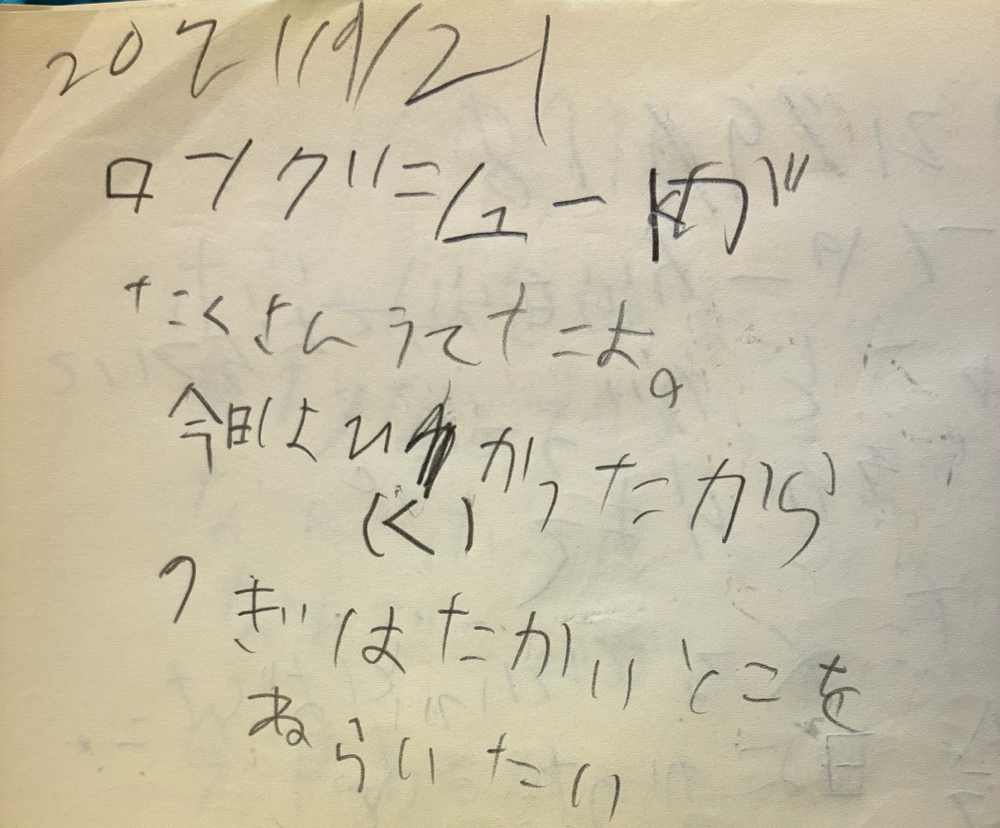 2021/9/21
ロングシュートが
たくさんうてたよ。
今日はひかったから
(く)
つぎはたかいとこを
ねらいたい